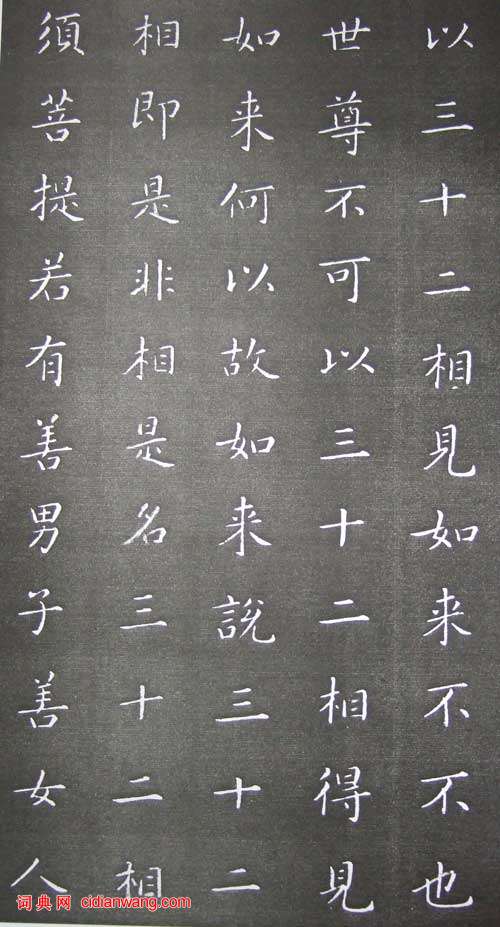 以三十二相見如来不不也
世尊不可以三十二相得見
如来何以故如来說三十二
相即是非相是名三十二相
須菩提若有善男子善女人
词典网 cidianwang.com